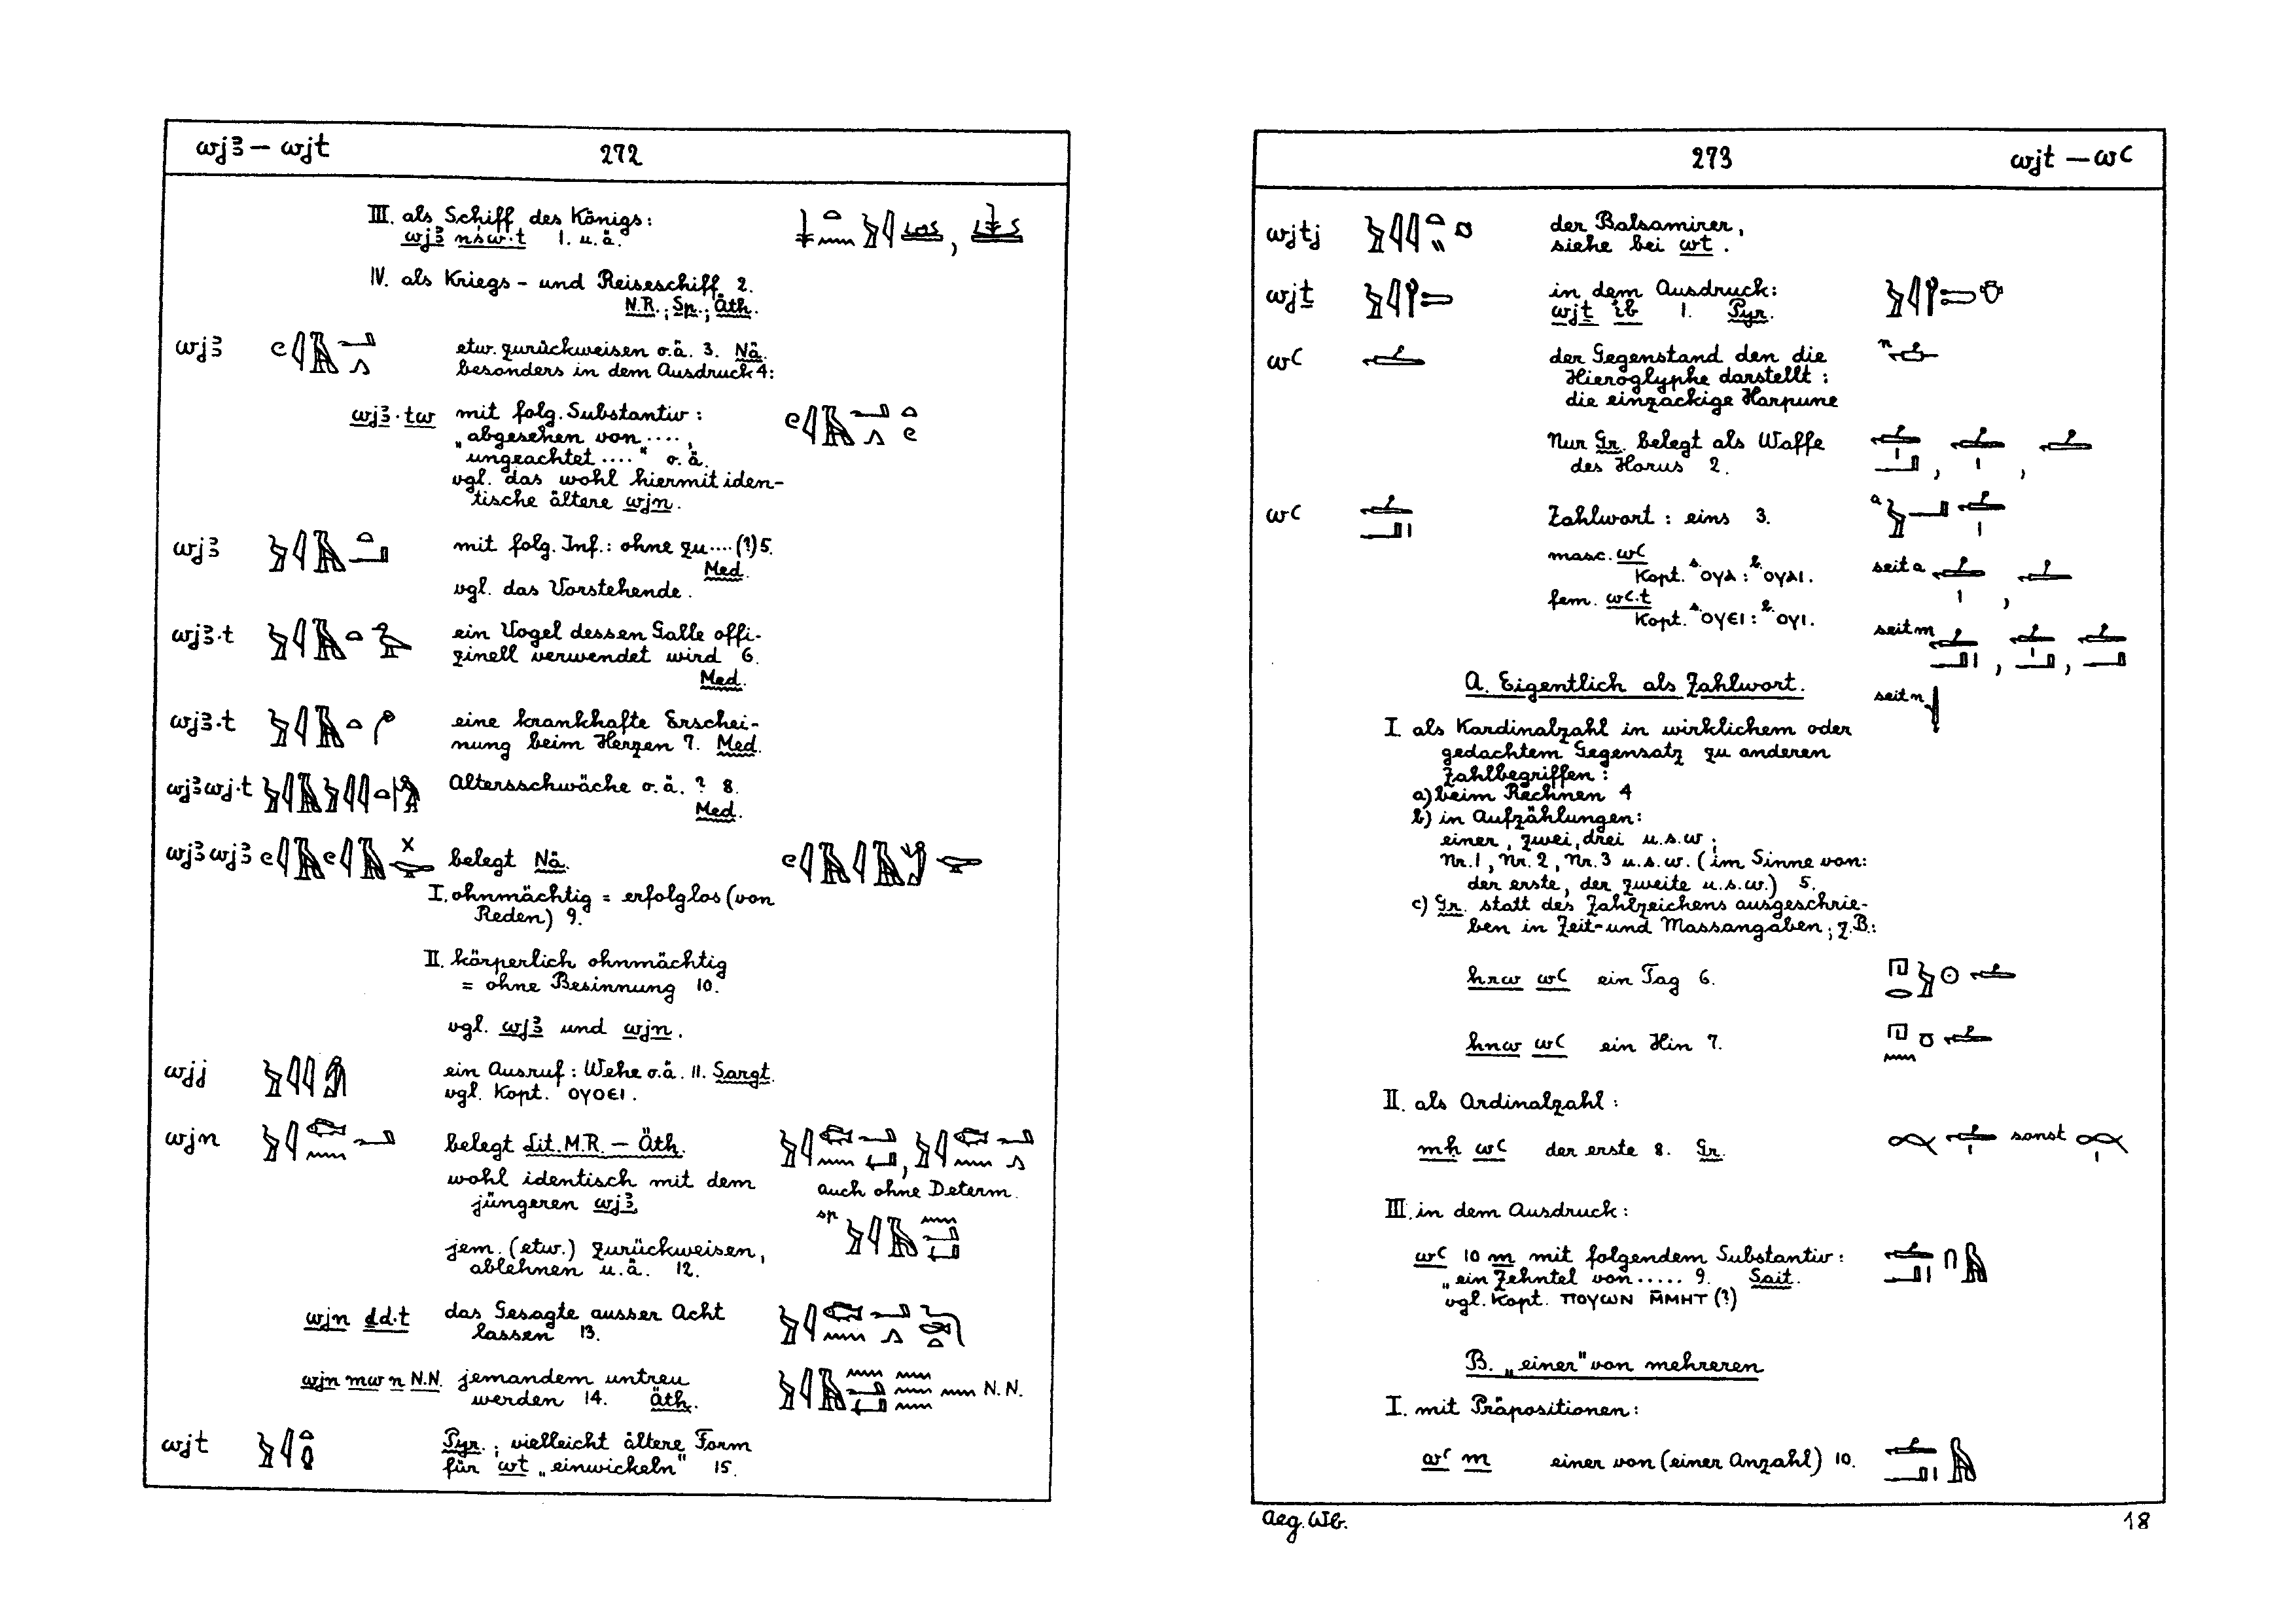 wjꜣ — wjt 272
III. als Schiff des Königs:
wjꜣ nśw·t 1. u.ä.
IV. als Kriegs- und Reiseschiff 2.
N.R.; Sp.; Äth.
wjꜣ etw. zurückweisen o.ä. 3. Nä.
besonders in dem Ausdruck 4:
wjꜣ·tw mit folg. Substantiv:
„abgesehen von ....,
"ungeachtet ...." o.ä.
vgl. das wohl hiermit iden-
tische ältere wjn.
wjꜣ mit folg. Inf.: ohne zu .... (?) 5.
Med.
vgl. das Vorstehende.
wjꜣ·t ein Vogel dessen Galle offi-
zinell verwendet wird 6.
Med.
wjꜣ·t eine krankhafte Erschei-
nung beim Herzen 7. Med.
wjꜣwj·t Altersschwäche o.ä. ? 8.
Med.
wjꜣwjꜣ belegt Nä.
I. ohnmächtig = erfolglos (von
Reden) 9.
II. körperlich ohnmächtig
= ohne Besinnung 10.
vgl. wjꜣ und wjn.
wjj ein Ausruf: Wehe o.ä. 11. Sargt.
vgl. Kopt. ⲟⲩⲟⲉⲓ.
wjn belegt Lit. M.R. — Äth.
wohl identisch mit dem auch ohne Determ.
jüngeren wjꜣ. sp
jem. (etw.) zurückweisen,
ablehnen u.ä. 12.
wjn ḏd·t das Gesagte ausser Acht
lassen 13.
wjn mw n N.N. jemandem untreu N.N.
werden 14. Äth.
wjt Pyr.; vielleicht ältere Form
für wt „einwickeln" 15.
273 wjt — wꜥ
wjtj der Balsamirer,
siehe bei wt.
wjṯ in dem Ausdruck:
wjṯ ỉb 1. Pyr.
wꜥ der Gegenstand den die n
Hieroglyphe darstellt:
die einzackige Harpune
Nur Gr. belegt als Waffe
des Horus 2.
wꜥ Zahlwort: eins 3. a
masc. wꜥ
Kopt. S. ⲟⲩⲁ : B. ⲟⲩⲁⲓ. seit a
fem. wꜥ·t
Kopt. S. ⲟⲩⲉⲓ : B. ⲟⲩⲓ. seit m
A. Eigentlich als Zahlwort. seit n
I. als Kardinalzahl in wirklichem oder
gedachtem Gegensatz zu anderen
Zahlbegriffen:
a) beim Rechnen 4
b) in Aufzählungen:
einer, zwei, drei u.s.w.;
Nr. 1, Nr. 2, Nr. 3 u.s.w. (im Sinne von:
der erste, der zweite u.s.w.) 5.
c) Gr. statt des Zahlzeichens ausgeschrie-
ben in Zeit- und Massangaben; z.B.:
hrw wꜥ ein Tag 6.
hnw wꜥ ein Hin 7.
II. als Ordinalzahl:
mḥ wꜥ der erste 8. Gr. sonst
III. in dem Ausdruck:
wꜥ 10 m mit folgendem Substantiv:
„ein Zehntel von ..... 9. Sait.
vgl. Kopt. ⲡⲟⲩⲱⲛ ⲙ̄ⲙⲏⲧ (?)
B. „einer" von mehreren
I. mit Präpositionen:
wꜥ m einer von (einer Anzahl) 10.
Aeg. Wb. 18